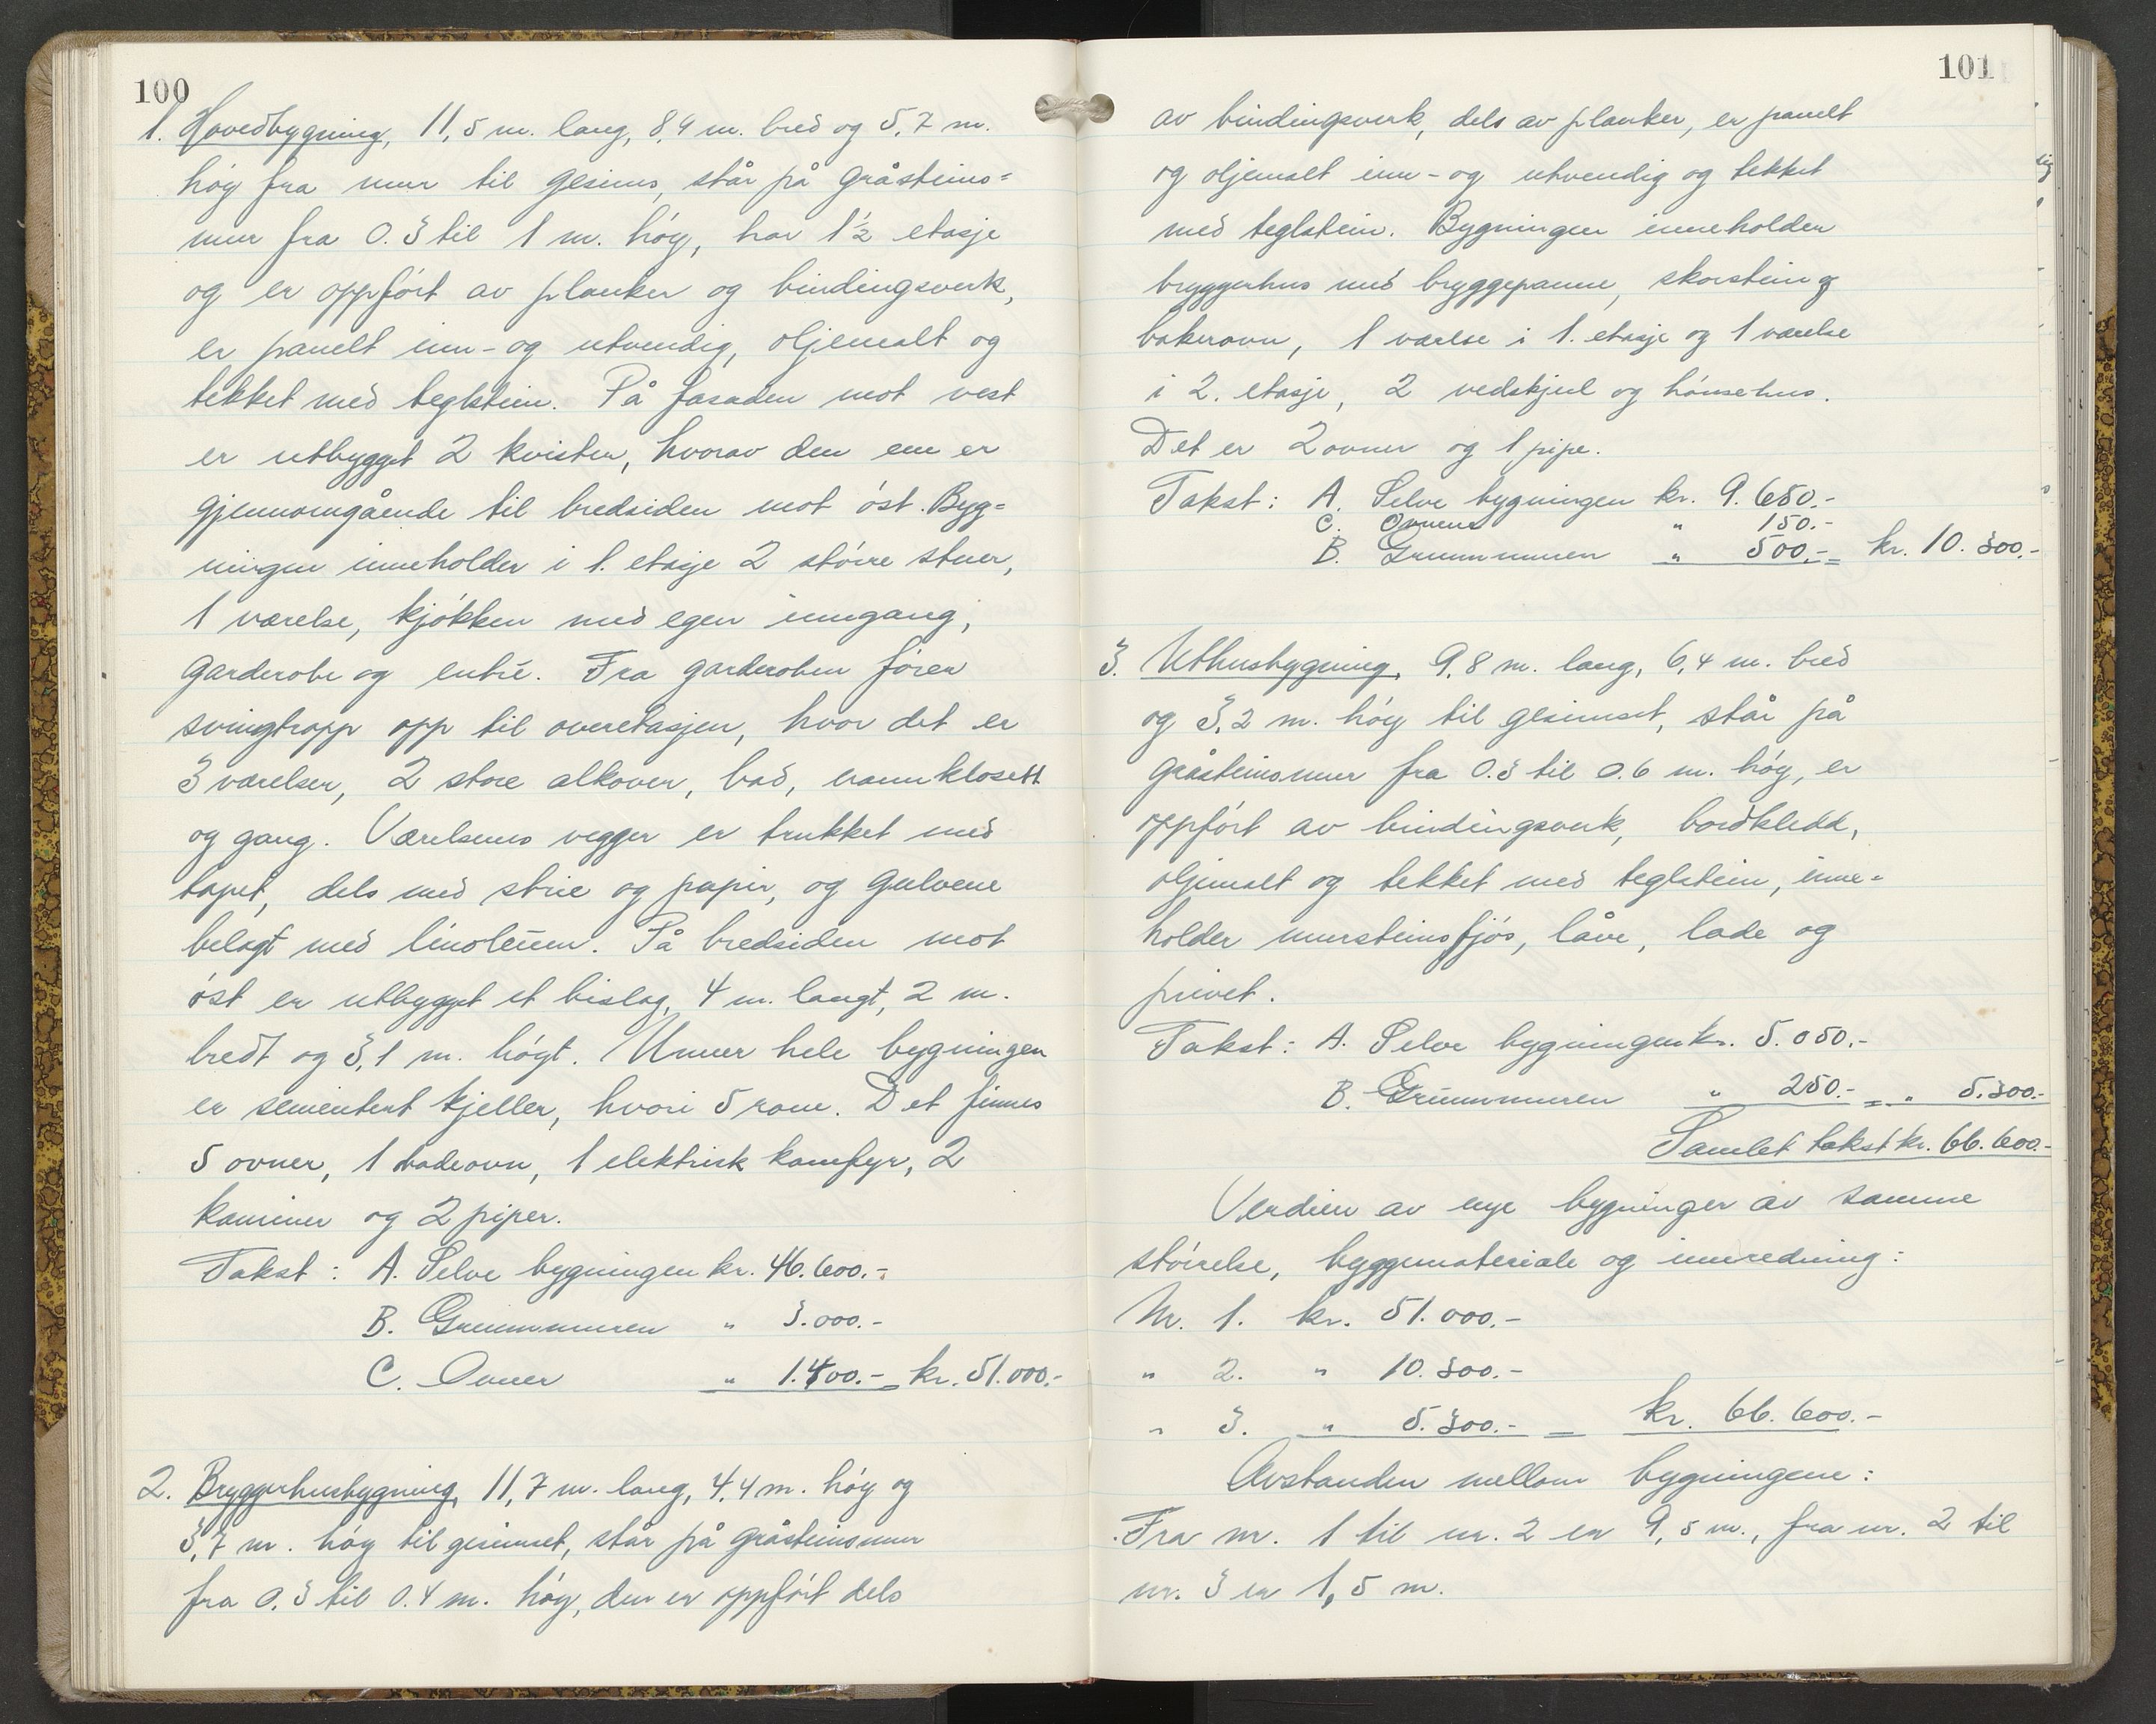 100
1. Hovedbygning, 11,5 m. lang, 8,4 m. bred og 5,7 m.
höy fra mur til gesims, står på gråsteins=
mur fra 0.3 til 1 m. höy, har 1½ etasje
og er oppfört av planker og bindingsverk,
er panelt inn- og utvendig, oljemalt og
tekket med teglstein. På fasaden mot vest
er utbygget 2 kvister, hvorav den ene er
gjennomgående til bredsiden mot öst. Byg=
ningen inneholder i 1. etasje 2 större stuer,
1 værelse, kjökken med egen inngang,
garderobe og entré. Fra garderoben förer
svingtrapp opp til overetasjen, hvor det er
3 værelser, 2 store alkover, bad, vannklosett
og gang. Værelsenes vegger er trukket med
tapet, dels med strie og papir, og gulvene
belagt med linoleum. På bredsiden mot
öst er utbygget et bislag, 4 m. langt, 2 m.
bredt og 3,1 m. höyt. Under hele bygningen
er sementert kjeller, hvori 5 rom. Det finnes
5 ovner, 1 badeovn, 1 elektrisk komfyr, 2
kaminer og 2 piper.
Takst: A. Selve bygningen kr. 46.600.-
B. Grunnmuren " 3.000.-
C. Ovner " 1.400.- = kr. 51.000.-
2. Bryggerhusbygning, 11,7 m. lang, 4,4 m. höy og
3,7 m. höy til gesimset, står på gråsteinsmur
fra 0.3 til 0.4 m. höy, den er oppfört dels
101
av bindingsverk, dels av planker, er panelt
og oljemalt inn- og utvendig og tekket
med teglstein. Bygningen inneholder
bryggerhus med bryggepanne, skorstein og
bakerovn, 1 værelse i 1. etasje og 1 værelse
i 2. etasje, 2 vedskjul og hönsehus.
Det er 2 ovner og 1 pipe.
Takst: A. Selve bygningen kr. 9.650.-
C. Ovnene " 150.-
B. Grunnmuren " 500.- = kr. 10.300.-
3. Uthusbygning, 9,8 m. lang, 6,4 m. bred
og 3,2 m. höy til gesimset, står på
gråsteinsmur fra 0.3 til 0.6 m. höy, er
oppfört av bindingsverk, bordkledd,
oljemalt og tekket med teglstein, inne=
holder mursteinsfjös, låve, lade og
privet.
Takst: A. Selve bygningen kr. 5.050.-
B. Grunnmuren " 250.- = " 5.300.-
Samlet takst kr. 66.600.-
Verdien av nye bygninger av samme
störrelse, byggemateriale og innredning:
Nr. 1. kr. 51.000.-
" 2. " 10.300.-
" 3. " 5.300.- = kr. 66.600.-
Avstanden mellom bygningene:
Fra nr. 1 til nr. 2 er 9,5 m., fra nr. 2 til
nr. 3 er 1,5 m.